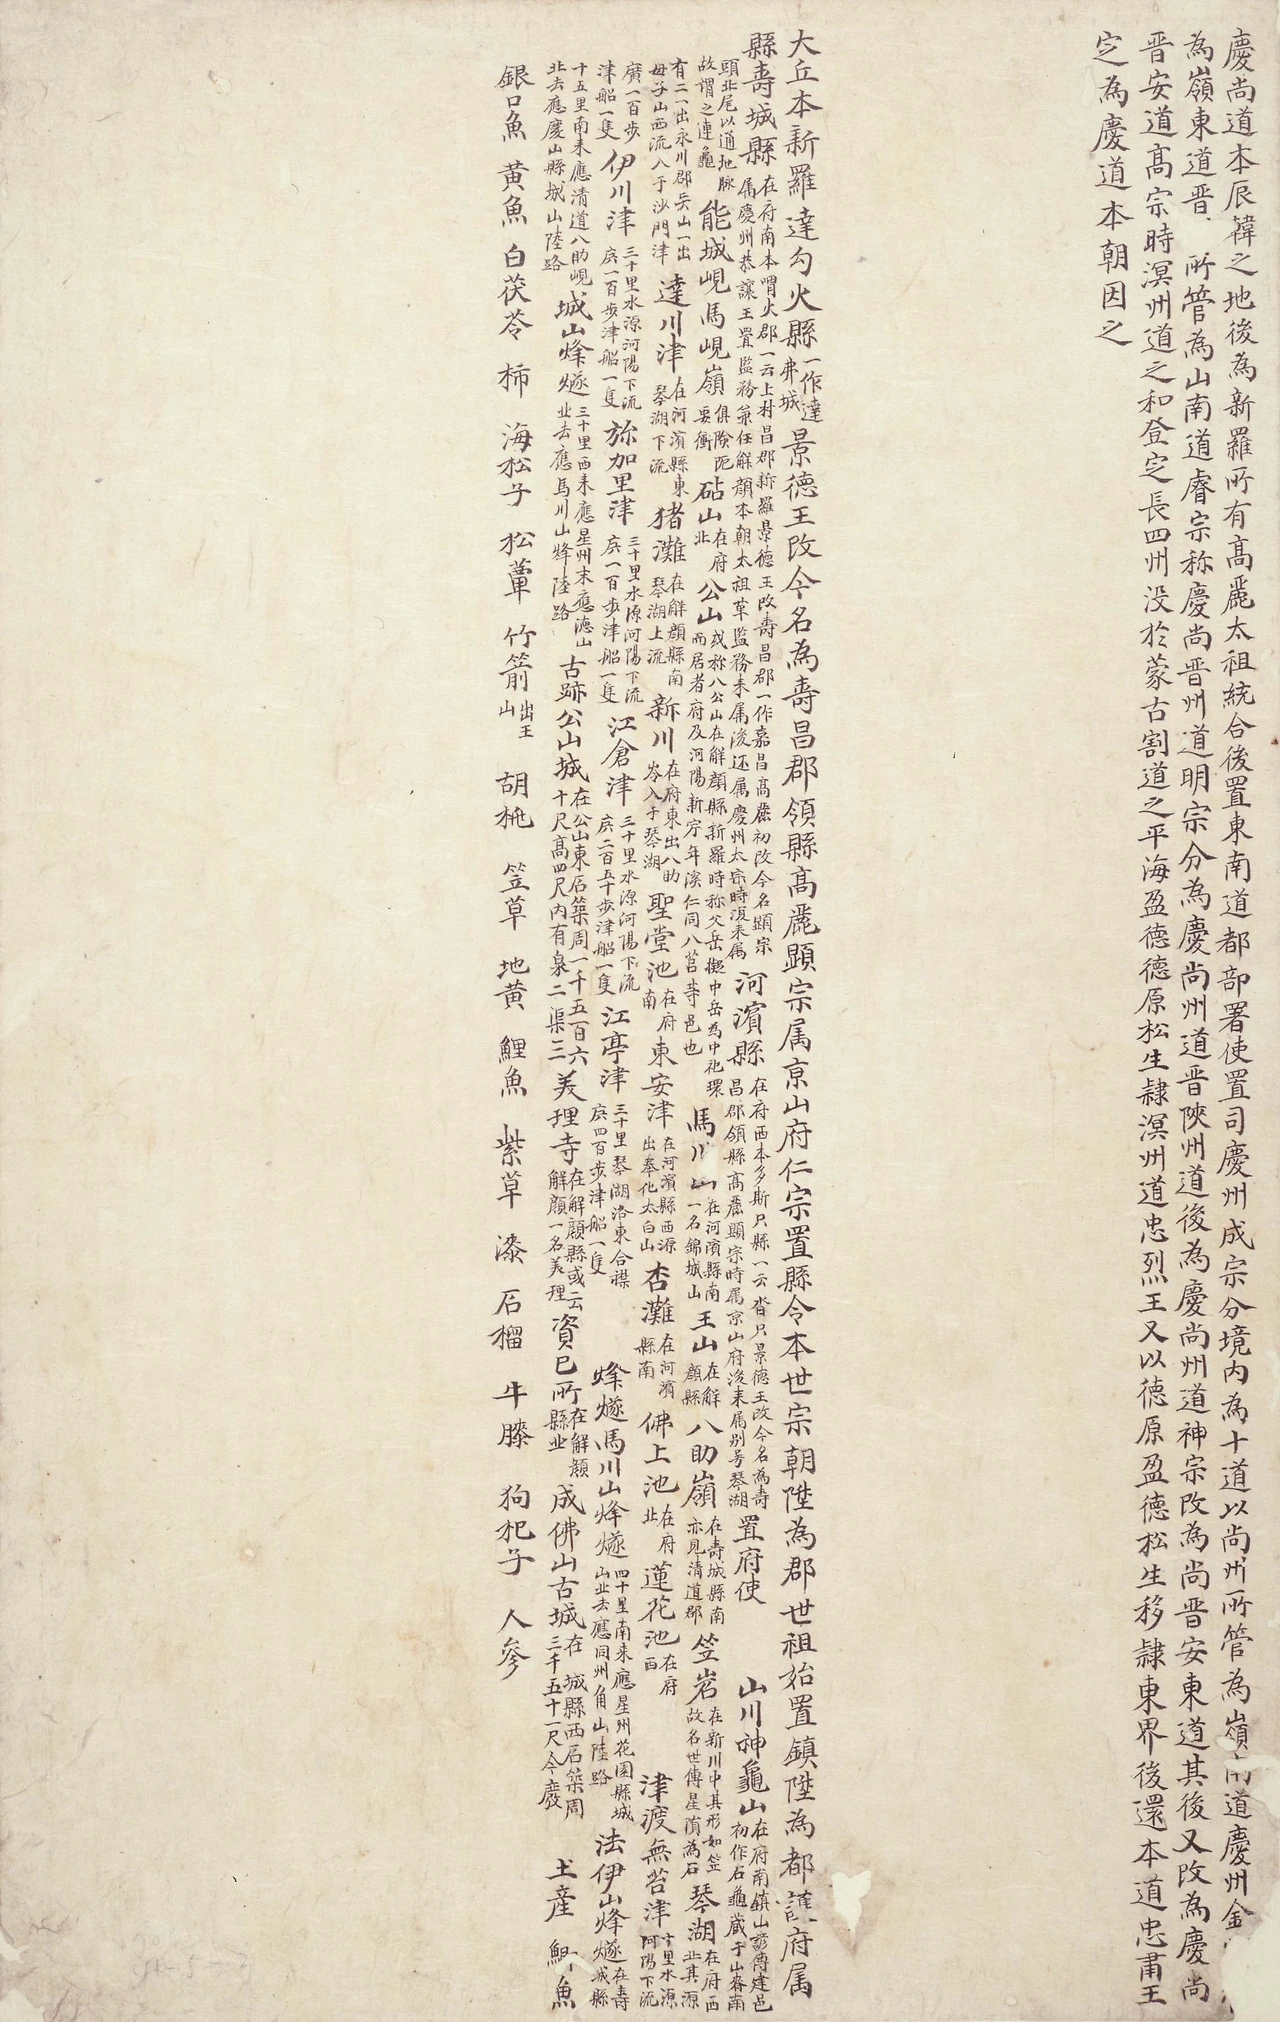 慶尚道本辰韓之地後為新羅所有高麗太祖統合後置東南道都部署使置司慶州成宗分境內為十道以尚州所管為嶺南道慶州金
為嶺東道晋 所管為山南道睿宗称慶尚晋州道明宗分為慶尚州道晋陜州道後為慶尚州道神宗改為尚晋安東道其後又改為慶尚
晋安道高宗時溟州道之和登定長四州没於蒙古割道之平海盈德德原松生隷溟州道忠烈王又以德原盈德松生移隷東界後還本道忠肅王
定為慶道本朝因之
大丘本新羅達勾火縣一作達弗城景德王改今名為壽昌郡領縣高麗顕宗属京山府仁宗置縣令本世宗朝陞為郡世祖始置鎮陞為都護府属
縣壽城縣在府南本喟火郡一云上村昌郡新羅景德王改壽昌郡一作嘉昌高麗初改今名顕宗属慶州恭讓王置監務兼任解顔本朝太祖草監務来属後还属慶州太宗時復来属河濱縣在府西本多斯只縣一云沓只景德王改今名為壽昌郡領縣高麗顕宗時属京山府後来属別号琴湖置府使 山川神龜山在府南鎮山諺傳建邑初作石龜藏于山脊南
頭北尾以通地脉故謂之連龜能城峴馬峴嶺俱險阨要衝砧山在府北公山或称八公山在解顔縣新羅時称父岳擬中岳為中祀環而居者府及河陽新宁年溪仁同八莒等邑也馬川山在河濱縣南一名錦城山王山在解顔縣八助嶺在壽城縣南亦見清道郡笠岩在新川中其形如笠故名世傳星隕為石琴湖在府西北其源
有二一出永川郡兵山一出母子山西流入于沙門津達川津在河濱縣東琴湖下流猪灘在解顔縣南琴湖上流新川在府東出八助岑入于琴湖聖堂池在府南東安津在河濱縣西源出奉化太白山杏灘在河濱縣南佛上池在府北蓮花池在府西 津渡無苔津十里水源河陽下流
廣一百歩津船一隻伊川津三十里水源河陽下流広一百歩津船一隻旀加里津三十里水源河陽下流広一百歩津船一隻江倉津三十里水源河陽下流広二百五十歩津船一隻江亭津三十里琴湖洛東合襟広四百歩津船一隻 烽燧馬川山烽燧四十里南来應星州花園縣城山北去應同州角山陸路法伊山烽燧在壽城縣
十五里南来應清道八助峴北去應慶山縣城山陸路城山烽燧三十里西来應星州末應德山北去應馬川山烽陸路古跡公山城在公山東石築周一千五百六十尺高四尺內有泉二渠三美理寺在解顔縣或云解顔一名美理資已所在解顔縣北成佛山古城在 城縣西石築周三千五十一尺今廢 土産 鯽魚
銀口魚 黄魚 白茯苓 柿 海松子 松蕈 竹箭出王山 胡桃 笠草 地黄 鯉魚 紫草 漆 石榴 牛膝 狗杞子 人參